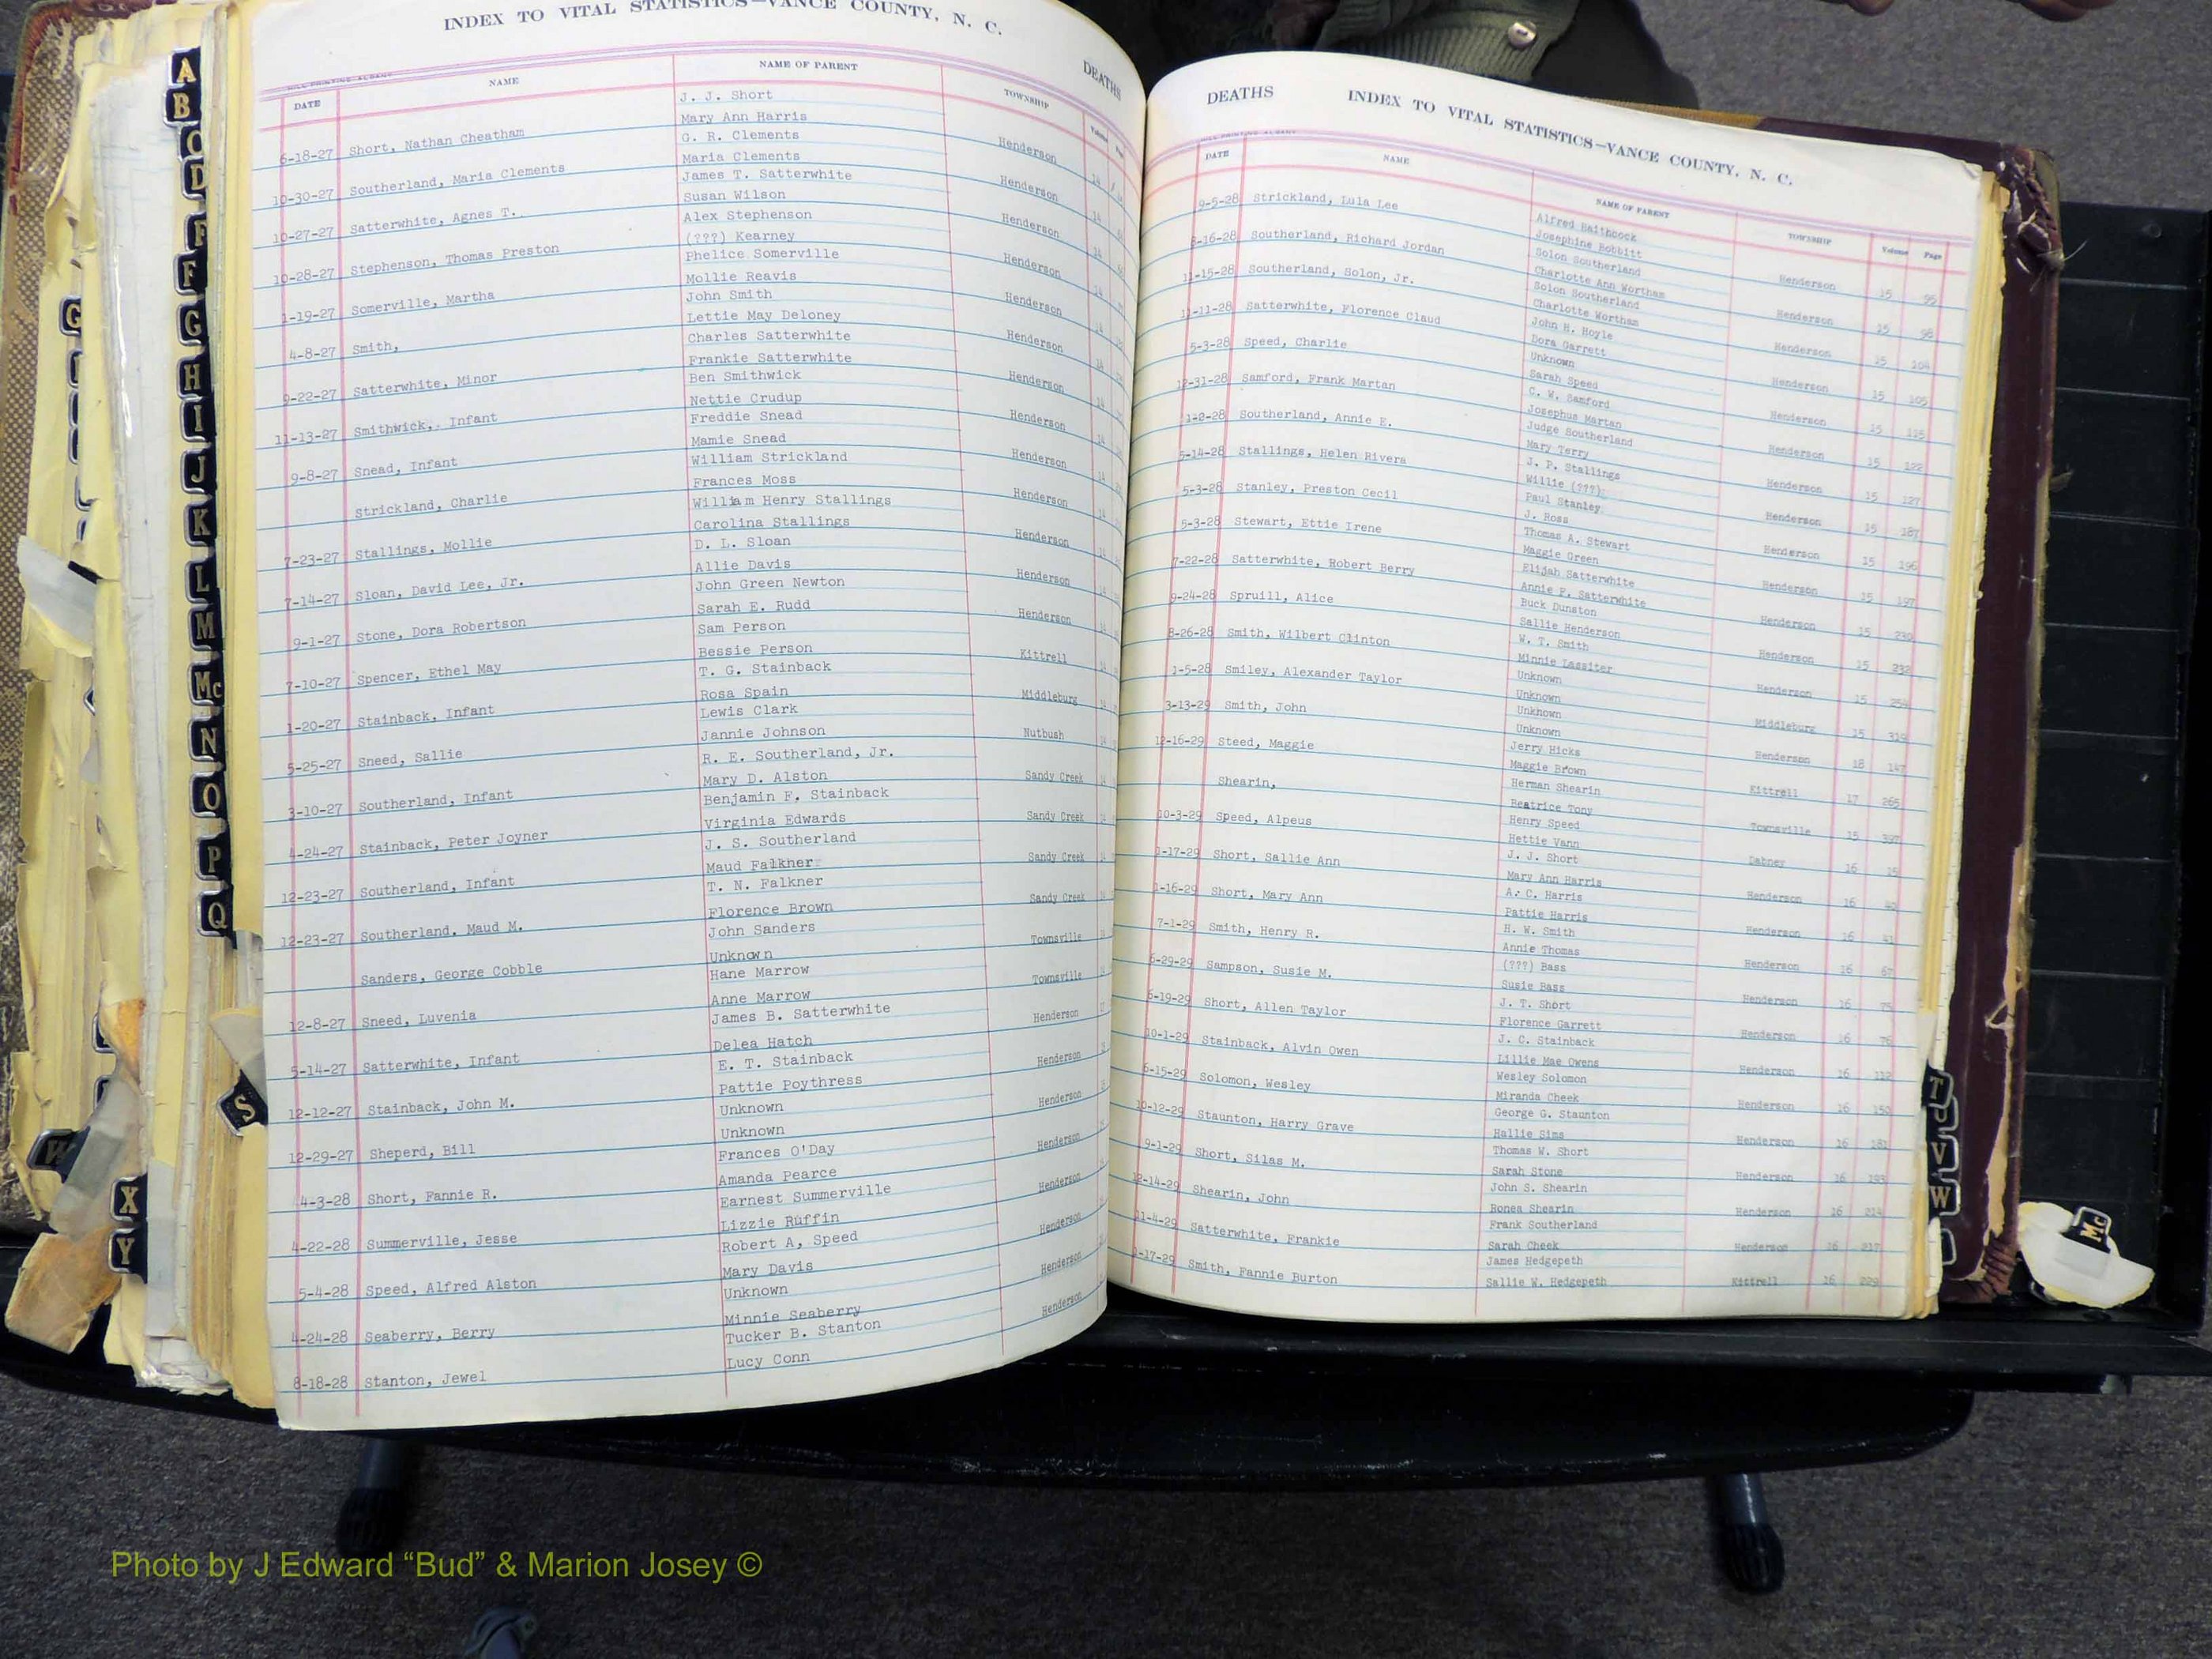 INDEX TO VITAL STATISTICS—VANCE COUNTY, N. C.
DEATHS
DATE NAME NAME OF PARENT TOWNSHIP
J. J. Short
6-18-27 Short, Nathan Cheatham Mary Ann Harris Henderson 14
G. R. Clements
10-30-27 Southerland, Maria Clements Maria Clements Henderson 14
James T. Satterwhite
10-27-27 Satterwhite, Agnes T. Susan Wilson Henderson 14
Alex Stephenson
10-28-27 Stephenson, Thomas Preston (???) Kearney Henderson 14
Phelice Somerville
1-19-27 Somerville, Martha Mollie Reavis Henderson
John Smith
4-8-27 Smith, Lettie May Deloney Henderson
Charles Satterwhite
9-22-27 Satterwhite, Minor Frankie Satterwhite Henderson
Ben Smithwick
11-13-27 Smithwick, Infant Nettie Crudup Henderson
Freddie Snead
9-8-27 Snead, Infant Mamie Snead Henderson
William Strickland
Strickland, Charlie Frances Moss Henderson
William Henry Stallings
7-23-27 Stallings, Mollie Carolina Stallings Henderson
D. L. Sloan
7-14-27 Sloan, David Lee, Jr. Allie Davis Henderson
John Green Newton
9-1-27 Stone, Dora Robertson Sarah E. Rudd Henderson
Sam Person
7-10-27 Spencer, Ethel May Bessie Person Kittrell
T. G. Stainback
1-20-27 Stainback, Infant Rosa Spain Middleburg
Lewis Clark
5-25-27 Sneed, Sallie Jannie Johnson Nutbush
R. E. Southerland, Jr.
3-10-27 Southerland, Infant Mary D. Alston Sandy Creek
Benjamin F. Stainback
4-24-27 Stainback, Peter Joyner Virginia Edwards Sandy Creek
J. S. Southerland
12-23-27 Southerland, Infant Maud Falkner Sandy Creek
T. N. Falkner
12-23-27 Southerland, Maud M. Florence Brown Sandy Creek
John Sanders
Sanders, George Cobble Unknown Townsville
Hane Marrow
12-8-27 Sneed, Luvenia Anne Marrow Townsville
James B. Satterwhite
5-14-27 Satterwhite, Infant Delea Hatch Henderson
E. T. Stainback
12-12-27 Stainback, John M. Pattie Poythress Henderson
Unknown
12-29-27 Sheperd, Bill Unknown Henderson
Frances O'Day
4-3-28 Short, Fannie R. Amanda Pearce Henderson
Earnest Summerville
4-22-28 Summerville, Jesse Lizzie Ruffin Henderson
Robert A, Speed
5-4-28 Speed, Alfred Alston Mary Davis Henderson
Unknown
4-24-28 Seaberry, Berry Minnie Seaberry Henderson
Tucker B. Stanton
8-18-28 Stanton, Jewel Lucy Conn Henderson
DEATHS
INDEX TO VITAL STATISTICS—VANCE COUNTY, N. C.
DATE NAME NAME OF PARENT TOWNSHIP Volume Page
Alfred Haithcock
9-5-28 Strickland, Lula Lee Josephine Bobbitt Henderson 15 95
Solon Southerland
Southerland, Richard Jordan Charlotte Ann Wortham Henderson 15 98
Solon Southerland
11-15-28 Southerland, Solon, Jr. Charlotte Wortham Henderson 15 104
John H. Hoyle
11-11-28 Satterwhite, Florence Claud Dora Garrett Henderson 15 105
Unknown
5-3-28 Speed, Charlie Sarah Speed Henderson 15 115
C. W. Samford
12-31-28 Samford, Frank Martan Josephus Martan Henderson 15 122
Judge Southerland
1-2-28 Southerland, Annie E. Mary Terry Henderson 15 127
J. P. Stallings
5-14-28 Stallings, Helen Rivera Willie (???) Henderson 15 187
Paul Stanley
5-3-28 Stanley, Preston Cecil J. Ross Henderson 15 196
Thomas A. Stewart
5-3-28 Stewart, Ettie Irene Maggie Green Henderson 15 197
Elijah Satterwhite
7-22-28 Satterwhite, Robert Berry Annie P. Satterwhite Henderson 15 230
Buck Dunston
9-24-28 Spruill, Alice Sallie Henderson Henderson 15 232
W. T. Smith
8-26-28 Smith, Wilbert Clinton Minnie Lassiter Henderson 15
Unknown
1-5-28 Smiley, Alexander Taylor Unknown Middleburg 15 319
Unknown
3-13-29 Smith, John Unknown Henderson 18 147
Jerry Hicks
12-16-29 Steed, Maggie Maggie Brown Kittrell 17 265
Herman Shearin
Shearin, Beatrice Tony Townsville 15 397
Henry Speed
10-3-29 Speed, Alpeus Hettie Vann Dabney 16 15
J. J. Short
1-17-29 Short, Sallie Ann Mary Ann Harris Henderson 16 40
A. C. Harris
1-16-29 Short, Mary Ann Pattie Harris Henderson 16 41
H. W. Smith
7-1-29 Smith, Henry R. Annie Thomas Henderson 16 67
(???) Bass
6-29-29 Sampson, Susie M. Susie Bass Henderson 16 75
J. T. Short
6-19-29 Short, Allen Taylor Florence Garrett Henderson 16 76
J. C. Stainback
10-1-29 Stainback, Alvin Owen Lillie Mae Owens Henderson 16 112
Wesley Solomon
6-15-29 Solomon, Wesley Miranda Cheek Henderson 16 150
George G. Staunton
10-12-29 Staunton, Harry Grave Hallie Sims Henderson 16 181
Thomas W. Short
9-1-29 Short, Silas M. Sarah Stone Henderson 16 193
John S. Shearin
12-14-29 Shearin, John Ronea Shearin Henderson 16 214
Frank Southerland
11-4-29 Satterwhite, Frankie Sarah Cheek Henderson 16 217
James Hedgepeth
1-17-29 Smith, Fannie Burton Sallie W. Hedgepeth Kittrell 16 229
A
B
C
D
F
F
G
H
I
J
K
L
M
Mc
N
O
P
Q
S
G
W
X
Y
T
V
W
Mc
Photo by J Edward “Bud” & Marion Josey ©